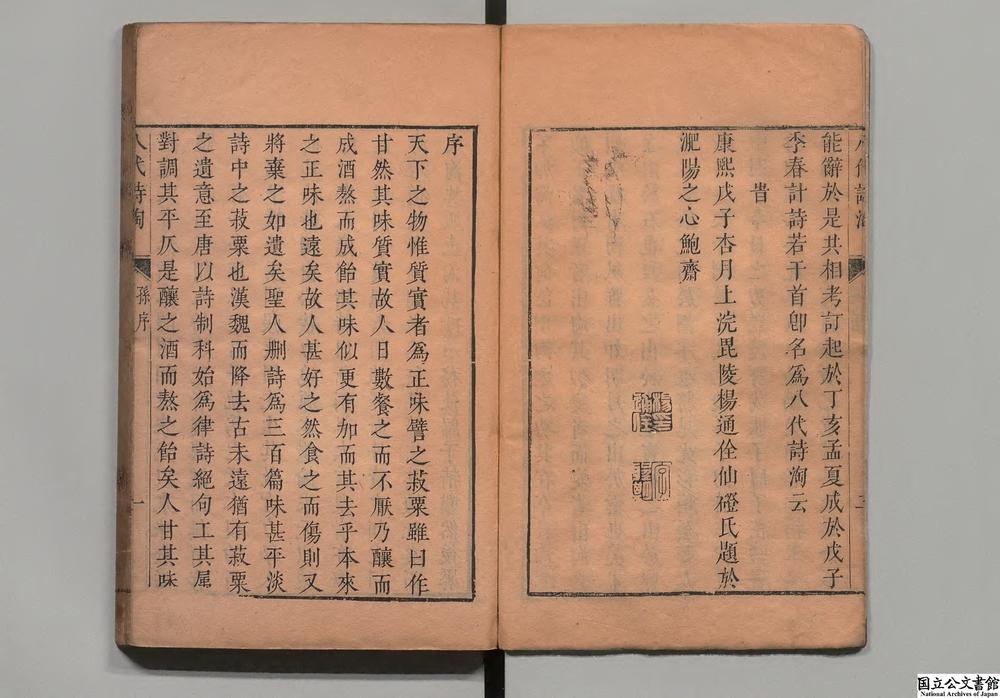 能辭於是共相考訂起於丁亥孟夏成於戊子
季春計詩若干首卽名爲八代詩淘云
旹
康熙戊子杏月上浣毘陵楊通佺仙磴氏題於
淝陽之心鮑齋
序
天下之物惟質實者爲正味譬之菽粟雖日作
甘然其味質實故人日數餐之而不厭乃釀而
成酒熬而成飴其味似更有加而其去乎本來
之正味也遠矣故人甚好之然食之而傷則又
將棄之如遺矣聖人刪詩爲三百篇味甚平淡
詩中之菽粟也漢魏而降去古未遠猶有菽粟
之遺意至唐以詩制科始爲律詩絕句工其屬
對調其平仄是釀之酒而熬之飴矣人甘其味
八代詩淘
孫序
一
国立公文書館
National Archives of Japan